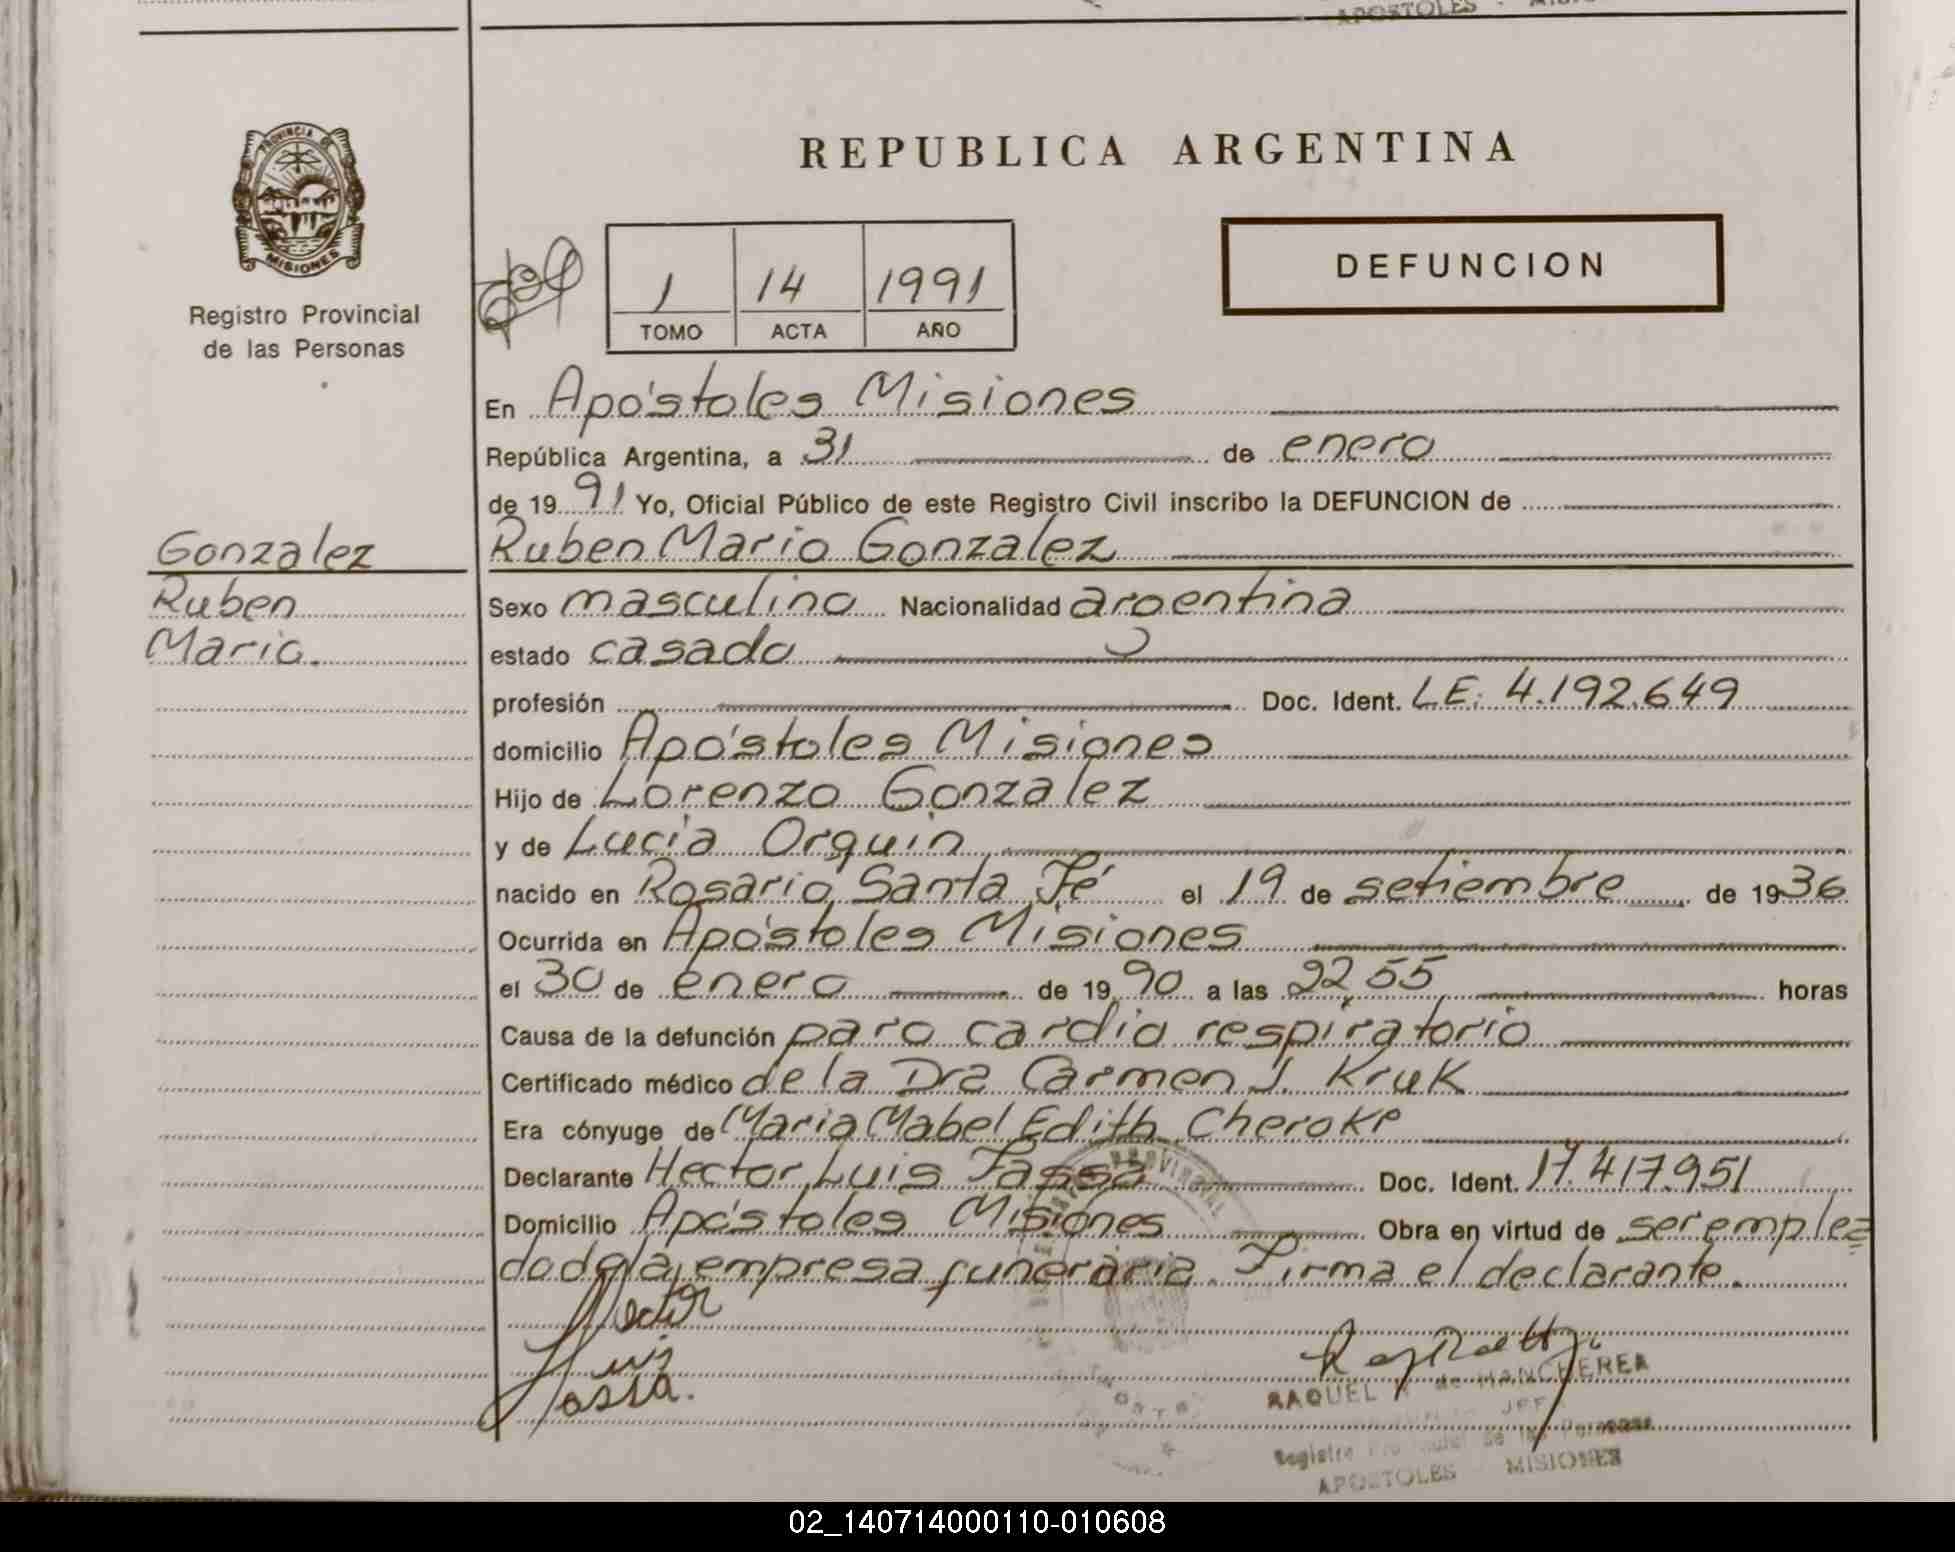 APOSTOLES
REPUBLICA ARGENTINA
PROVINCIA DE
MISIONES
Registro Provincial
de las Personas
1 14 1991
TOMO ACTA AÑO
DEFUNCION
En Apóstoles Misiones
República Argentina, a 31 de enero
de 1991 Yo, Oficial Público de este Registro Civil inscribo la DEFUNCION de
Gonzalez
Ruben Mario Gonzalez
Ruben
Sexo masculino Nacionalidad argentina
Mario.
estado casado
profesión Doc. Ident. L.E. 4.192.649
domicilio Apóstoles Misiones
Hijo de Lorenzo Gonzalez
y de Lucia Orquin
nacido en Rosario Santa Fé el 19 de setiembre de 1936
Ocurrida en Apóstoles Misiones
el 30 de enero de 1990 a las 22,55 horas
Causa de la defunción paro cardio respiratorio
Certificado médico de la Dra Carmen J. Kruk
Era cónyuge de Maria Mabel Edith Cheroke
Declarante Hector Luis Fassa Doc. Ident. 17.417.951
Domicilio Apóstoles Misiones Obra en virtud de ser emplea=
do de la empresa funeraria. Firma el declarante.
Hector
Luis
Fassa.
RAQUEL de MANCHEREA
JEFE
Registro Provincial de las Personas
APOSTOLES MISIONES
02_140714000110-010608